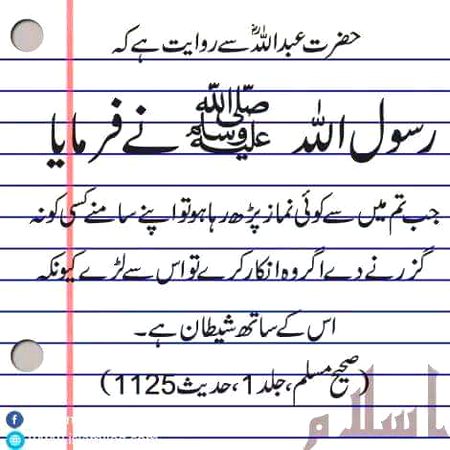 حضرت عبداللہؓ سے روایت ہے کہ
رسول اللہ ﷺ نے فرمایا
جب تم میں سے کوئی نماز پڑھ رہا ہو تو اپنے سامنے کسی کو نہ
گزرنے دے اگر وہ انکار کرے تو اس سے لڑے کیونکہ
اس کے ساتھ شیطان ہے۔
(صحیح مسلم، جلد 1، حدیث 1125)
اسلام